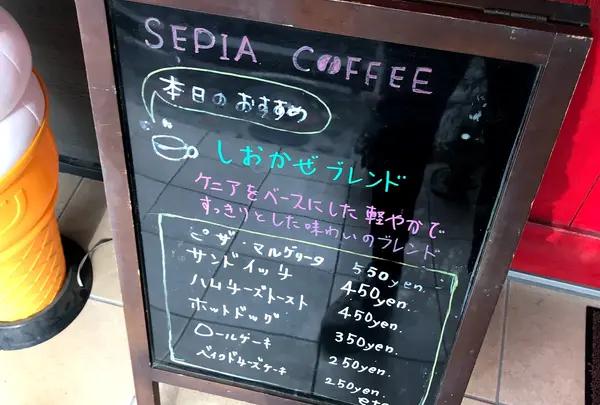 SEPIA COFFEE
本日のおすすめ
しおかぜブレンド
ケニアをベースにした軽やかで
すっきりとした味わいのブレンド
ピザ・マルゲリータ 550yen.
サンドイッチ 450yen.
ハムチーズトースト 450yen.
ホットドッグ 350yen.
ロールケーキ 250yen.
ベイクドチーズケーキ 250yen.
etc